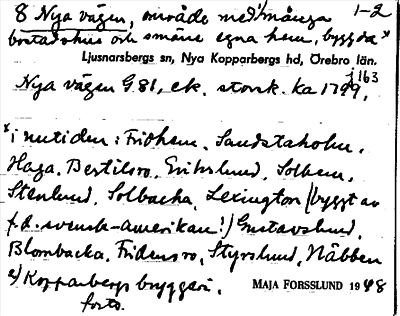 8 Nya vägen, område med många 1-2
bostadshus och smärre egna hem, byggda x
Ljusnarsbergs sn, Nya Kopparbergs hd, Örebro län.
j 163
Nya vägen G.81, ek. storsk. ka 1799,
x i nutiden: Fridhem, Sandstaholm,
Haga, Bertilsro, Erikslund, Solhem,
Stenlund, Solbacka, Lexington (byggt av
f.d. svensk-amerikan!) Gustavslund,
Blombacka, Fridensro, Styrslund, Näbben
2) Kopparbergs bryggeri,
MAJA FORSSLUND 1948
forts.